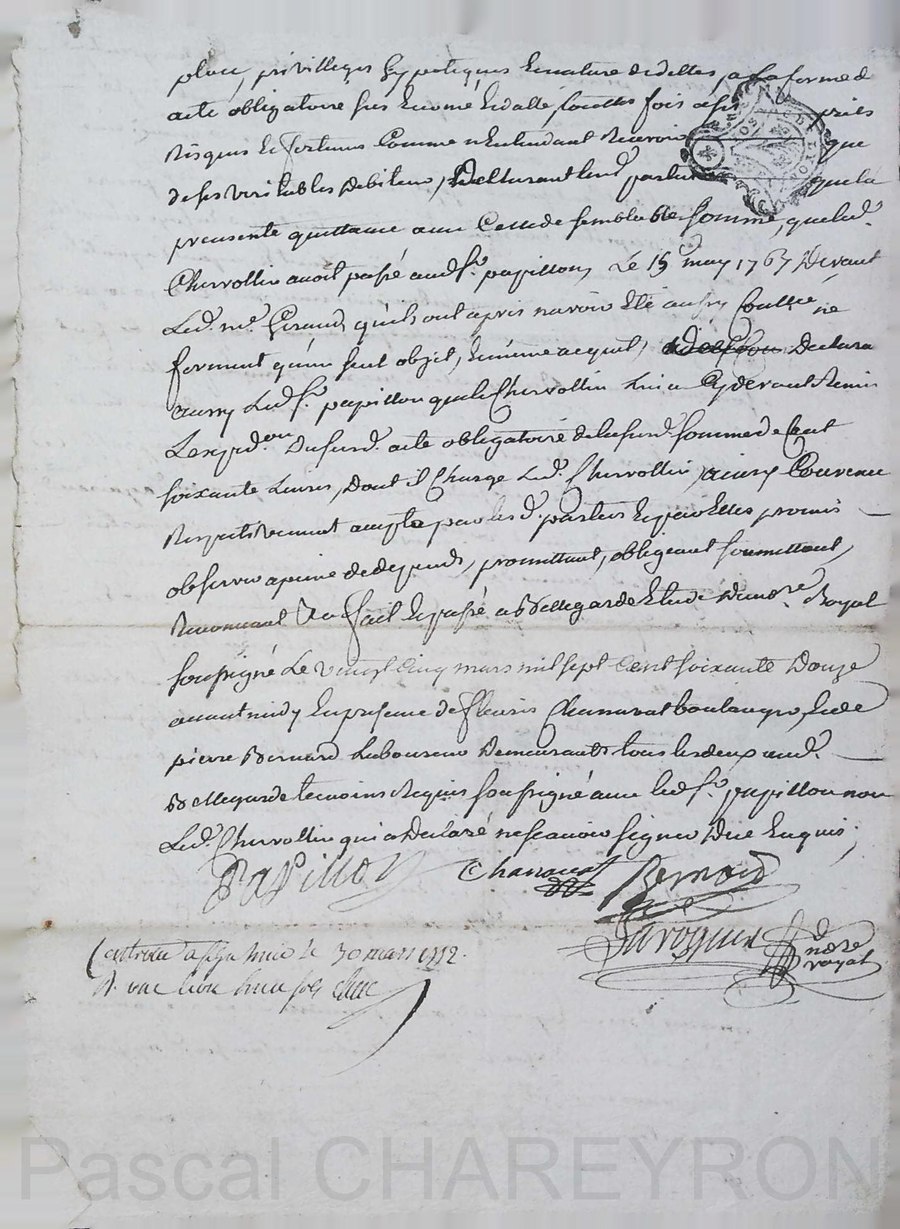 place, privilleges hypoteques Et nature de dettes, a la forme d
acte obligatoire sus Enoncé Et datté, touttes fois a ses périls
Risques Et fortunes Comme n'Entendant Recevoir que
de ses veritables debiteurs, parties que la
presente quittance avec Celle de semblable somme, que led.
Chervollin avoit passé aud. Sr. papillon, Le 15 may 1767 Devant
Led. me. Giraud, qu'ils ont apris n'avoir Eté aussy Contllée, ne
forment qu'un seul objet, Et même acquit, Declara
aussy Led. Sr. papillon que le Chervollin lui a Cy devant Remis
L'expedon. Dususd. acte obligatoire de la susd. somme de Cent
soixante Livres, Dont il Charge Led. Chervollin, ainsy Convenu
Respectivement accepté par les d. parties Et par Elles promis
observer a peine de depends, promettant, obligeant soumettant,
Renonceant &a fait Et passé a Bellegarde Etude Du nore. Royal
soussigné Le vingt Cinq mars mil sept Cent soixante Douze
avant midy En presence de fleuris Chanavat boulanger, Et de
pierre Bernard Laboureur Demeurants tous les deux aud.
Bellegarde temoins Requis soussigné avec led. Sr. papillon non
Led. Chervollin qui a Declaré ne scavoir signer De ce Enquis;
PaPillon Chanavat Bernard
nore
royal
Controllé a le 30 mars 1772.
R. une livre
Pascal CHAREYRON